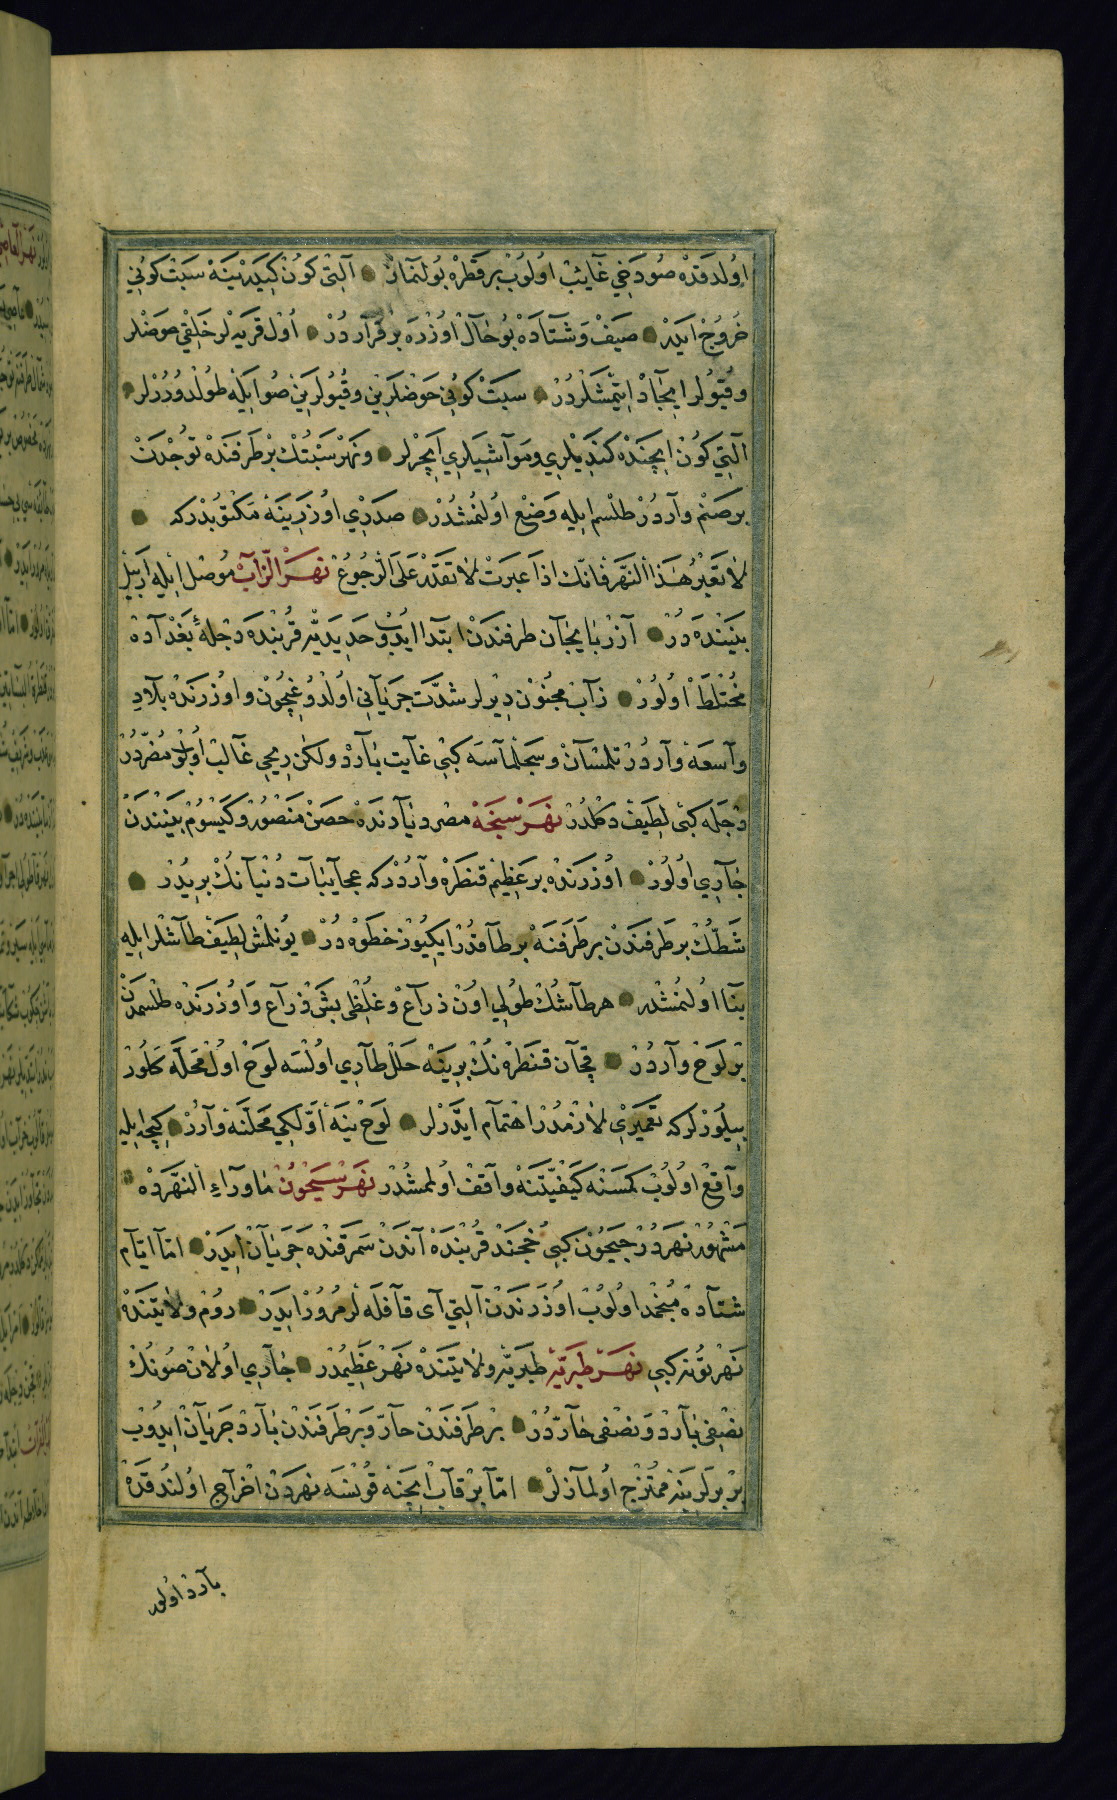 اولدقده صو دخی غآیب اولوب بر قطره بولنماز ● آلتی کون کیدر ینه سبت کونی
خروج ایدر ● صیف و شتآده بو حآل اوزره بر قرآردر ● اول قریه لر خلقی حوضلر
و قیولر ایجاد ایتمشلردر ● سبت کونی حوضلرینی و قیولرینی صو ایله طولدوررلر ●
آلتی کون ایچنده کندیلری و موآشیلری ایچرلر ● و نهر سبتک بر طرفنده توجدن
بر صنم وآردر طلسم ایله وضع اولنمشدر ● صدری اوزرینه مکتوبدر که ●
لا تعبر هذا النهر فانک اذا عبرت لا تقدر علی الرجوع نهر الزآب موصل ایله اربیل
بیننده در ● آذربایجآن طرفندن ابتدا ایدوب حدیدیه قربنده دجلهٔ بغدآده
مختلط اولور ● زآب مجنون دیرلر شدت جریآنی اولدوغیچون و اوزرنده بلاد
وآسعه وآردر تلمسآن و سجلمآسه کبی غآیت بآرد ولکن ریحی غآلب اولوب مضردر
دجله کبی لطیف دکلدر نهر سنجه مصر دیآرنده حصن منصور و کیسوم بیننده
جآری اولور ● اوزرنده بر عظیم قنطره وآردر که عجآیبآت دنیآنک بریدر ●
شطک بر طرفندن بر طرفنه بر طآقدر ایکیوز خطوه در ● یونلمش لطیف طآشلر ایله
بنآ اولنمشدر ● هر طآشک طولی اون ذرآع و غلظی بش ذرآع و اوزرنده طلسمدن
بر لوح وآردر ● قچآن قنطره نک برینه خلل طآری اولسه لوح اول محله کلور
بیلورلر که تعمیری لازمدر اهتمآم ایدرلر ● لوح ینه اولکی محلنه وآرر ● کیجه ایله
وآقع اولوب کمسنه کیفیتنه وآقف اولممشدر نهر سیحون ماورآء النهرده ●
مشهور نهردر جیحون کبی خجند قربنده آندن سمرقنده جریآن ایدر ● امآ ایآم
شتآده منجمد اولوب اوزرندن آلتی آی قآفله لر مرور ایدر ● روم ولایتنده
نهر تونه کبی نهر طبریه طبریه ولایتنده نهر عظیمدر ● جآری اولان صونک
نصفی بآرد و نصفی حآردر ● بر طرفندن حآر و بر طرفندن بآرد جریآن ایدوب
بر برلرینه ممتزج اولمآزلر ● امآ بر قآب ایچنه قونسه نهردن اخرآج اولندقده
بآرد اولور